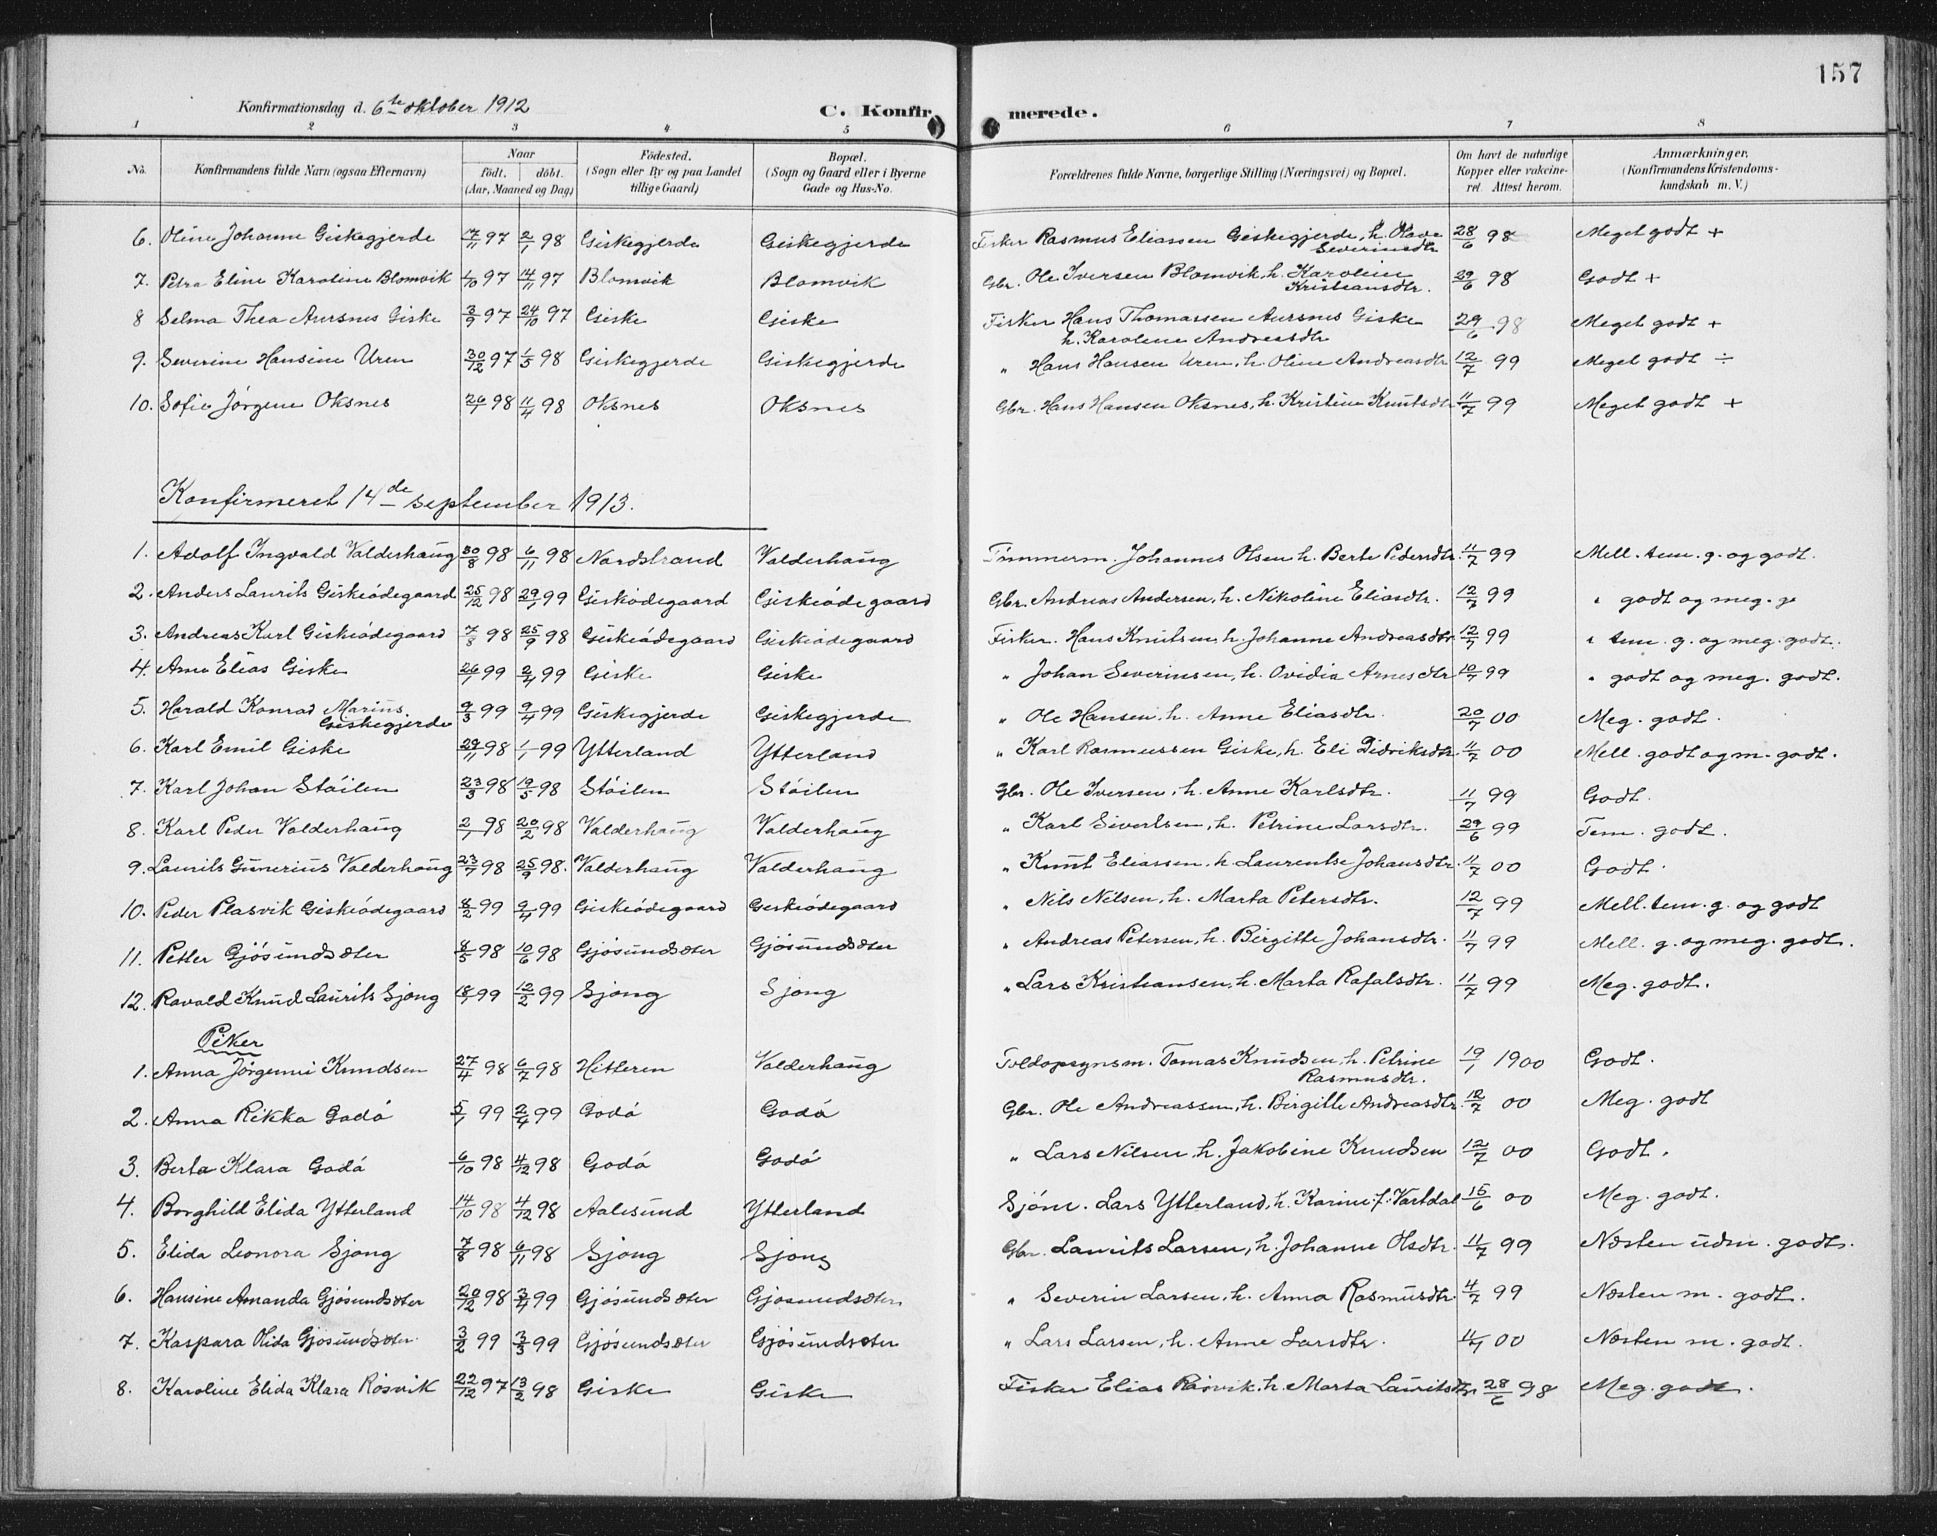 157
Konfirmationsdag d. 6te oktober 1912
C. Konfirmerede.
1 2 3 4 5 6 7 8
No. Konfirmandens fulde Navn (ogsaa Efternavn) Naar født. døbt. (Aar, Maaned og Dag) Fødested. (Sogn eller By og paa Landet tillige Gaard) Bopæl. (Sogn og Gaard eller i Byerne Gade og Hus-No. Forældrenes fulde Navne, borgerlige Stilling (Næringsvei) og Bopæl. Om havt de naturlige Kopper eller vakcineret. Attest herom. Anmærkninger. (Konfirmandens Kristendomskundskab m. V.)
6. Oline Johanne Giskegjerde 17/11 97 2/1 98 Giskegjerde Giskegjerde Fisker Rasmus Eliassen Giskegjerde, h. Olave Severinsdtr 28/6 98 Meget godt +
7. Petra Eline Karoline Blomvik 1/10 97 14/11 97 Blomvik Blomvik Gbr. Ole Iversen Blomvik, h. Karoline Kristiansdtr. 29/6 98 Godt +
8 Selma Thea Aursnes Giske 3/9 97 24/10 97 Giske Giske Fisker Hans Thomassen Aursnes Giske h. Karoline Andreasdtr 29/6 98 Meget godt +
9. Severine Hansine Uren 30/12 97 1/5 98 Giskegjerde Giskegjerde " Hans Hansen Uren, h. Oline Andreasdtr 12/7 99 Meget godt ÷
10. Sofie Jørgine Oksnes 26/1 98 11/4 98 Oksnes Oksnes Gbr. Hans Hansen Oksnes, h. Kristine Knutsdtr 11/7 99 Meget godt +
Konfirmeret 14de september 1913.
1. Adolf Ingvald Valderhaug 30/8 98 6/11 98 Nordstrand Valderhaug Tømmerm. Johannes Olsen h. Berte Pedersdtr. 11/7 99 Mell. tem. g. og godt.
2. Anders Laurits Giskeødegaard 25/12 98 29/1 99 Giskeødegaard Giskeødegaard Gbr. Andreas Andersen, h. Nikoline Eliasdtr. 12/7 99 " godt og meg. g
3. Andreas Karl Giskeødegaard 7/8 98 25/9 98 Giskeødegaard Giskeødegaard Fisker. Hans Knutsen, h. Johanne Andreasdtr 12/7 99 " tem. g. og meg. godt.
4. Arne Elias Giske 26/1 99 2/4 99 Giske Giske " Johan Severinsen, h. Ovidia Arnesdtr 10/7 99 " godt og meg. godt.
5. Harald Konrad Marius Giskegjerde 9/3 99 9/4 99 Giskegjerde Giskegjerde " Ole Hansen, h. Anne Eliasdtr. 20/7 00 Meg. godt.
6. Karl Emil Giske 29/11 98 1/1 99 Ytterland Ytterland " Karl Rasmussen Giske, h. Eli Didriksdtr. 11/7 00 Mell. godt og m. godt.
7. Karl Johan Støilen 23/3 98 19/5 98 Støilen Støilen Gbr. Ole Iversen, h. Anne Karlsdtr. 11/7 99 Godt.
8. Karl Peder Valderhaug 2/1 98 20/2 98 Valderhaug Valderhaug " Karl Sivertsen, h. Petrine Larsdtr. 29/6 99 Tem. godt.
9. Laurits Gunerius Valderhaug 23/7 98 25/9 98. Valderhaug Valderhaug " Knut Eliassen, h. Laurentse Johansdtr. 11/7 00 Godt.
10. Peder Plasvik Giskeødegaard 8/2 99 9/4 99 Giskeødegaard Giskeødegaard " Nils Nilsen, h. Marta Petersdtr. 12/7 99 Mell. tem. g. og godt
11. Petter Gjøsundsæter 8/5 98 10/6 98 Gjøsundsæter Gjøsundsæter " Andreas Petersen, h. Birgitte Johansdtr. 11/7 99 Mell. g. og meg. godt.
12. Ravald Knud Laurits Sjong 18/1 99 12/2 99 Sjong Sjong " Lars Kristiansen, h. Marta Rafalsdtr. 11/7 99 Meg. godt.
Piker
1. Anna Jørgenni Knudsen 27/4 98 6/7 98 Hitteren Valderhaug Toldopsynsm. Tomas Knudsen, h. Petrine Rasmusdtr. 19/1 1900 Godt.
2. Anna Rikka Godø 5/1 99 2/4 99 Godø Godø Gbr. Ole Andreassen, h. Birgitte Andreasdtr. 12/7 00 Meg. godt
3. Berta Klara Godø 6/10 98 4/12 98 Godø Godø " Lars Nilsen, h. Jakobine Knudsen 12/7 00 Godt.
4. Borghild Elida Ytterland 14/10 98 4/12 98 Aalesund Ytterland Sjøm. Lars Ytterland, h. Karine f. Vartdal 15/6 00 Meg. godt.
5. Elida Leonora Sjong 7/8 98 6/11 98 Sjong Sjong Gbr. Laurits Larsen, h. Johanne Olsdtr. 11/7 99 Næsten udm. godt.
6. Hansine Amanda Gjøsundsæter 20/12 98 3/4 99 Gjøsundsæter Gjøsundsæter " Severin Larsen, h. Anna Rasmusdtr. 4/7 99 Næsten m. godt.
7. Kaspara Olida Gjøsundsæter 3/2 99 3/3 99 Gjøsundsæter Gjøsundsæter " Lars Larsen, h. Anne Larsdtr. 11/7 00 Næsten m. godt.
8. Karoline Elida Klara Røsvik 22/12 97 13/2 98 Giske Giske Fisker Elias Røsvik, h. Marta Lauritsdtr 28/6 98 Meg. godt.